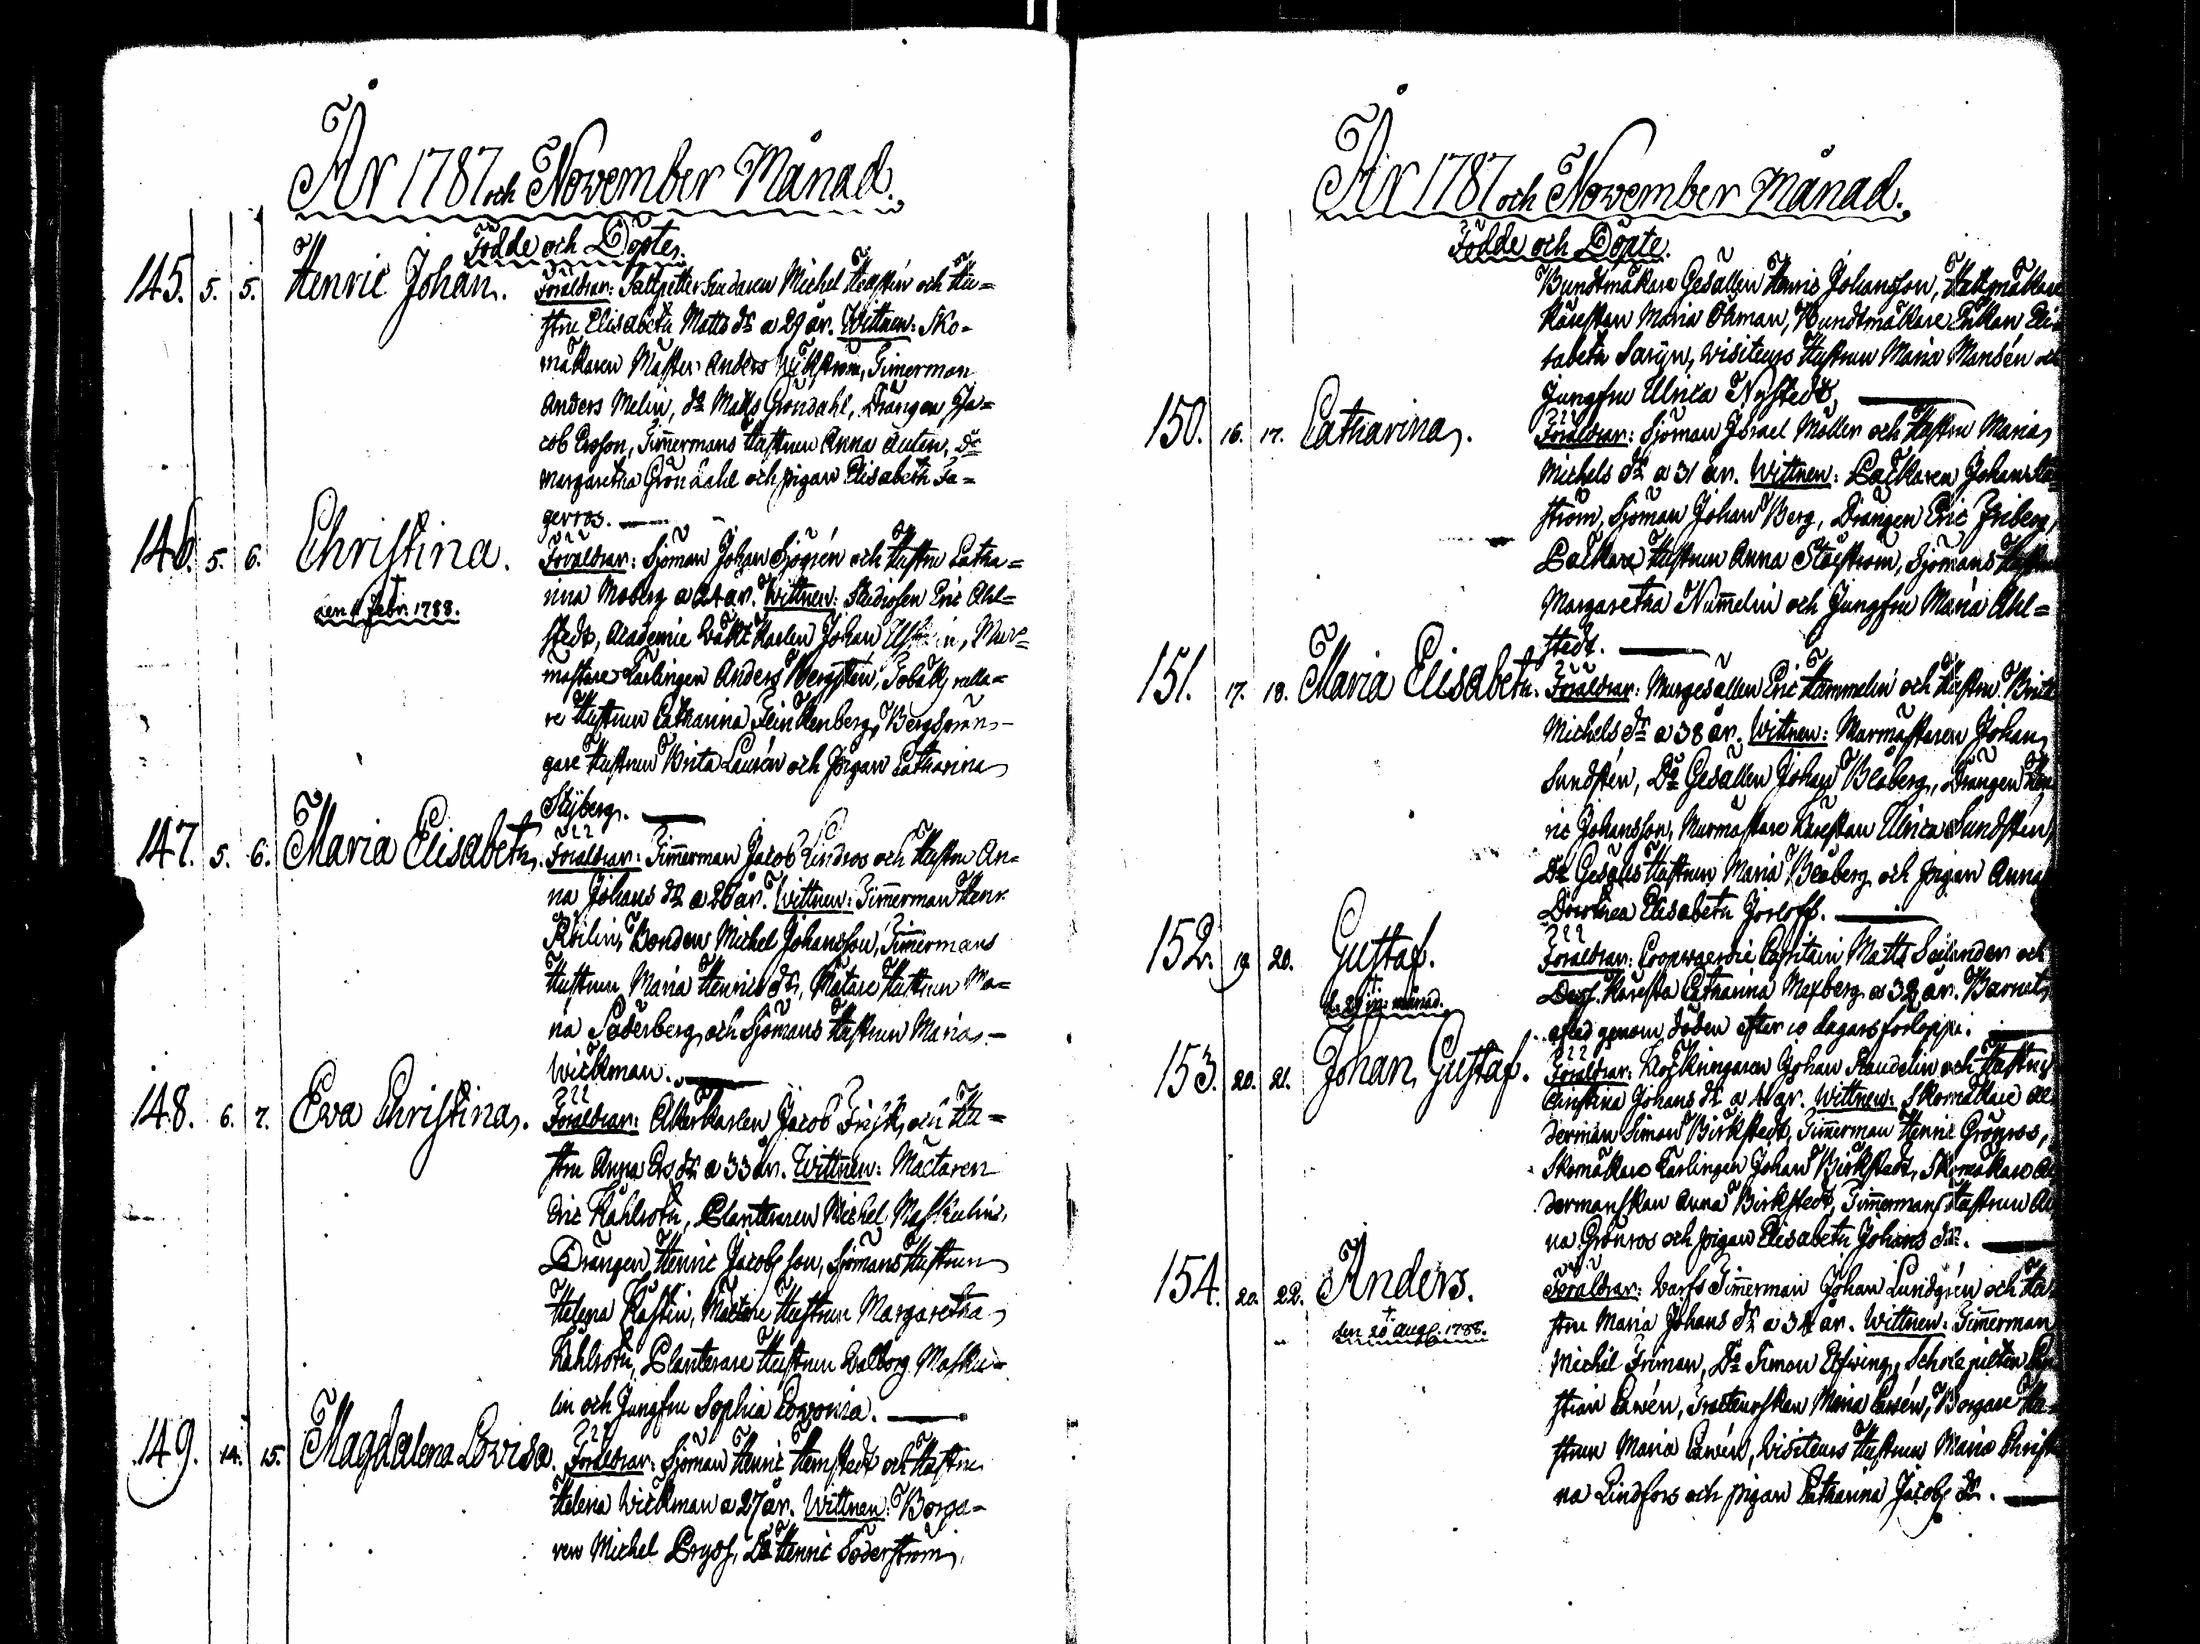 År 1787 och November Månad.
Födde och Döpte.
145. 5. 5. Henric Johan. Föräldrar: Saltpetter Siudaren Michel Hrastin och Hu=
stru Elisabeth Matts dr a 29 år. Wittnen: Sko-
makaren Mäster Anders Wikström, Timerman
Anders Melin, do Matts Gröndahl, Drängen Ja=
cob Ersson, Timermans Hustrun Anna Auten, Do
Margaretha Gröndahl och pigan Elisabeth Fa=
gerros.
146. 5. 6. Christina. Föräldrar: Sjöman Johan Sjögrén och Hustru Catha=
rina Moberg a 24 år. Wittnen: Studiosen Eric Ahl=
den Febr: 1788.
stedt, Academie Wakt Karlen Johan, Mur=
mästare Lärlingen Anders Bergsten, Tobaks
re Hustrun Catharina Flinckenberg, Bergsprän-
gare Hustrun Brita Laurén och Pigan Catharina
Skyberg.
147. 5. 6. Maria Elisabeth. Föräldrar: Timmerman Jacob Lindros och Hustru An=
na Johans dr a 26 år. Wittnen: Timmerman Henr.
Röilin, Bonden Michel Johansson, Timmermans
Hustrun Maria Henrics dr, Mätare Hustrun Ma=
ria Söderberg och Sjömans Hustrun Maria
Wickman.
148. 6. 7. Eva Christina. Föräldrar: Åkerkarlen Jacob Frisk och Hu=
stru Anna Ers dr a 33 år. Wittnen: Mactaren
Eric Kahlroth, Planteraren Michel Maskulin,
Drängen Henric Jacobsson, Sjömans Hustrun
Helena Hastin, Mactare Hustrun Margaretha
Kahlroth, Planterare Hustrun Walborg Masku=
lin och Jungfru Sophia
149. 14. 15. Magdalena Lovisa. Föräldrar: Sjöman Henric Hemstedt och Hustru
Helena Wickman a 27 år. Wittnen: Borga=
ren Michel Pryss, Do Henric Söderström,
År 1787 och November Månad.
Födde och Döpte.
Bundtmakare Gesällen Henric Johansson, Hattmakare
Kärestan Maria Öhman, Bundtmakare Enkan Eli
sabeth Saryn, Visiteurs Hustrun Maria Mansén och
Jungfru Ulrica Nystedt,
150. 16. 17. Catharina. Föräldrar: Sjöman Israel Möller och Hustru Maria
Michels dr a 31 år. Wittnen: Packaren Johan
ström, Sjöman Johan Berg, Drängen Eric Friberg,
Packare Hustrun Anna Ståhlström, Sjömans Hustrun
Margaretha Nummelin och Jungfru Maria Ahl=
stedt.
151. 17. 18. Maria Elisabeth. Föräldrar: Murgesällen Eric Hammelin och Hustru Brita
Michels dr a 38 år. Wittnen: Murmästaren Johan
Sundstén, Do Gesällen Johan Blåberg, Drängen Hen
ric Johansson, Murmästare Kärestan Ulrica Sundstén,
Do Gesälls Hustrun Maria Blåberg och pigan Anna
Dorothea Elisabeth Jorloff.
152. 19. 20. Gustaf. Föräldrar: Coopvaerdie Capitain Matts Seilander och
Dess Käresta Catharina Mexberg a 32 år. Barnet
d. 29 in: månad.
afled genom döden efter 10 dagars förlopp.
153. 20. 21. Johan Gustaf. Föräldrar: Klockringaren Johan Randelin och Hustru
Christina Johans dr a 40 år. Wittnen: Skomakare Al
derman Simon Birkstedt, Timmerman Henric Grönros,
Skomakare Lärlingen Johan Birkstedt, Skomakare Al
dermanskan Anna Birkstedt, Timmermans Hustrun An
na Grönros och pigan Elisabeth Johans dr.
154. 20. 22. Anders. Föräldrar: Warfs Timmerman Johan Lundgrén och Hu
stru Maria Johans dr a 34 år. Wittnen: Timmerman
den 20 Aug. 1788.
Michel Friman, Do Simon Elfwing, Schole pilten Chri
stian Cawén, Tracteurskan Maria Cawén, Borgare Hu
strun Maria Cawén, Visiteurs Hustrun Maria Christi
na Lindfors och pigan Catharina Jacobs dr.